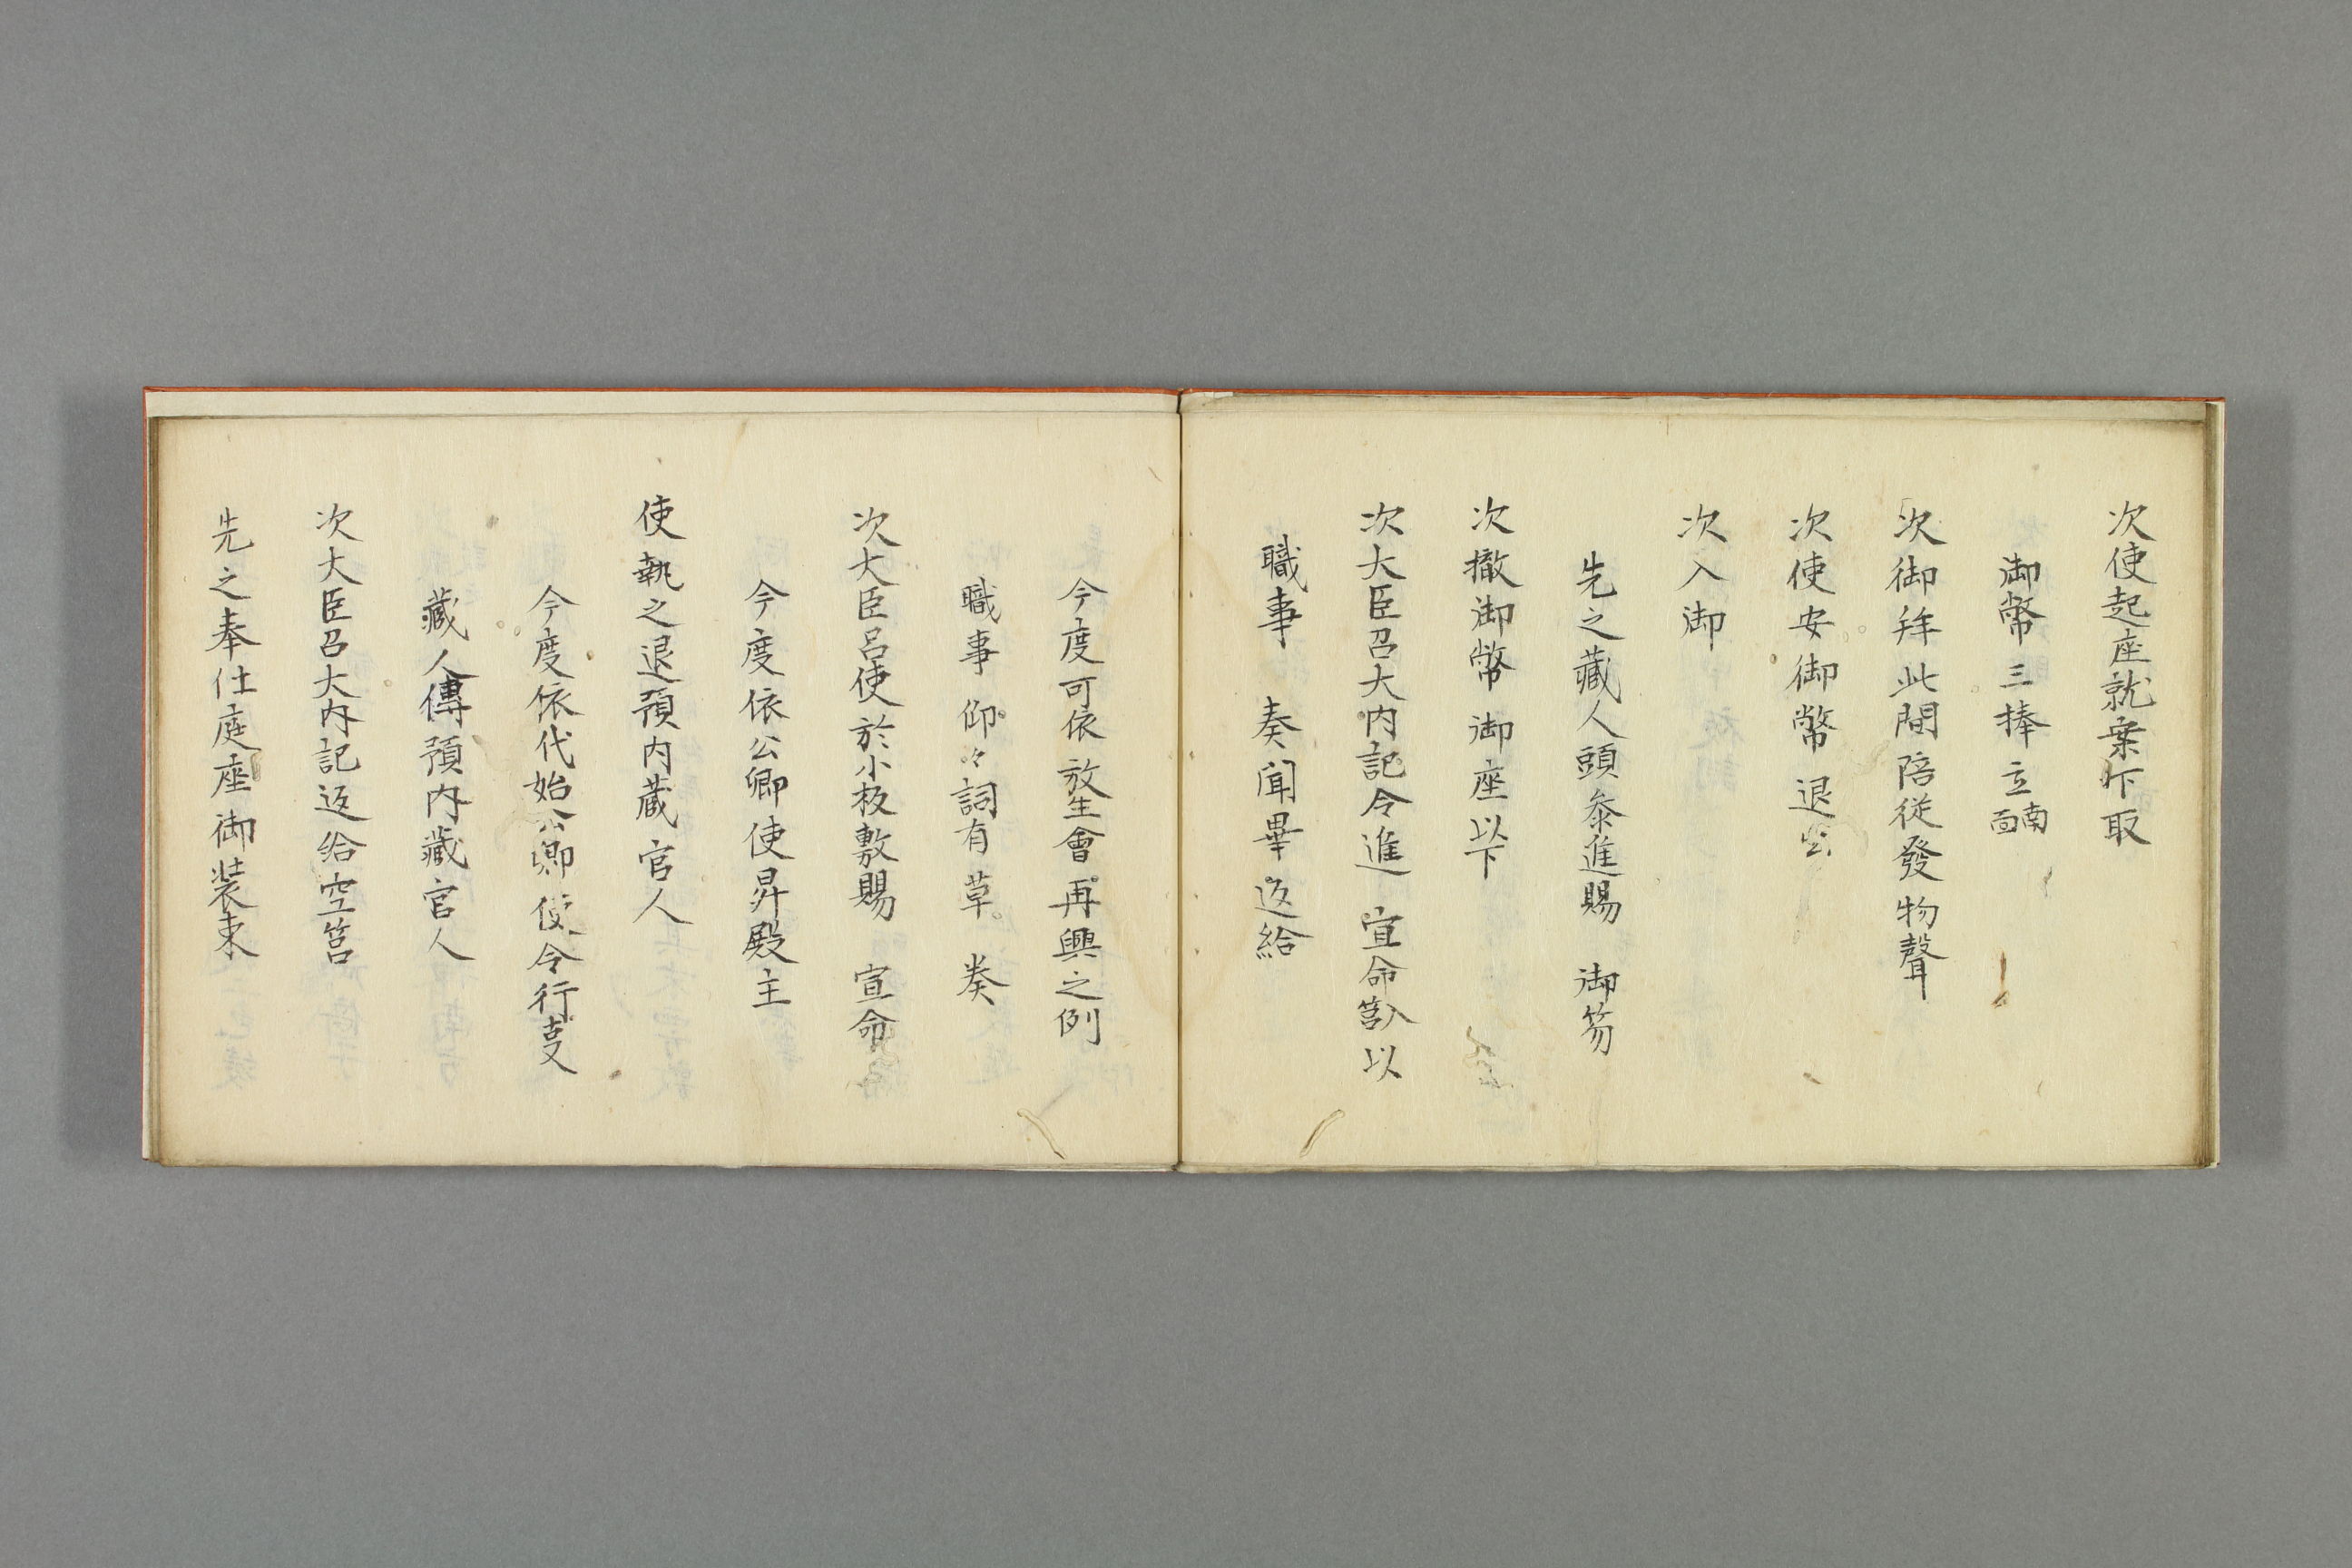 次使起座就案下取
御幣三捧立南面
次御拜此間陪従發物聲
次使安御幣退出
次入御
先之藏人頭叅進賜　御笏
次撤御幣御座以下
次大臣召大内記令進　宣命入筥以
職事　奏聞畢返給
今度可依放生會再興之例
職事仰々詞有草　奏
次大臣召使於小板敷賜　宣命
今度依公卿使昇殿主
使執之退預内蔵官人
今度依代始公卿使令行叓
藏人傳預内藏官人
次大臣召大内記返給空筥
先之奉仕庭座御装束